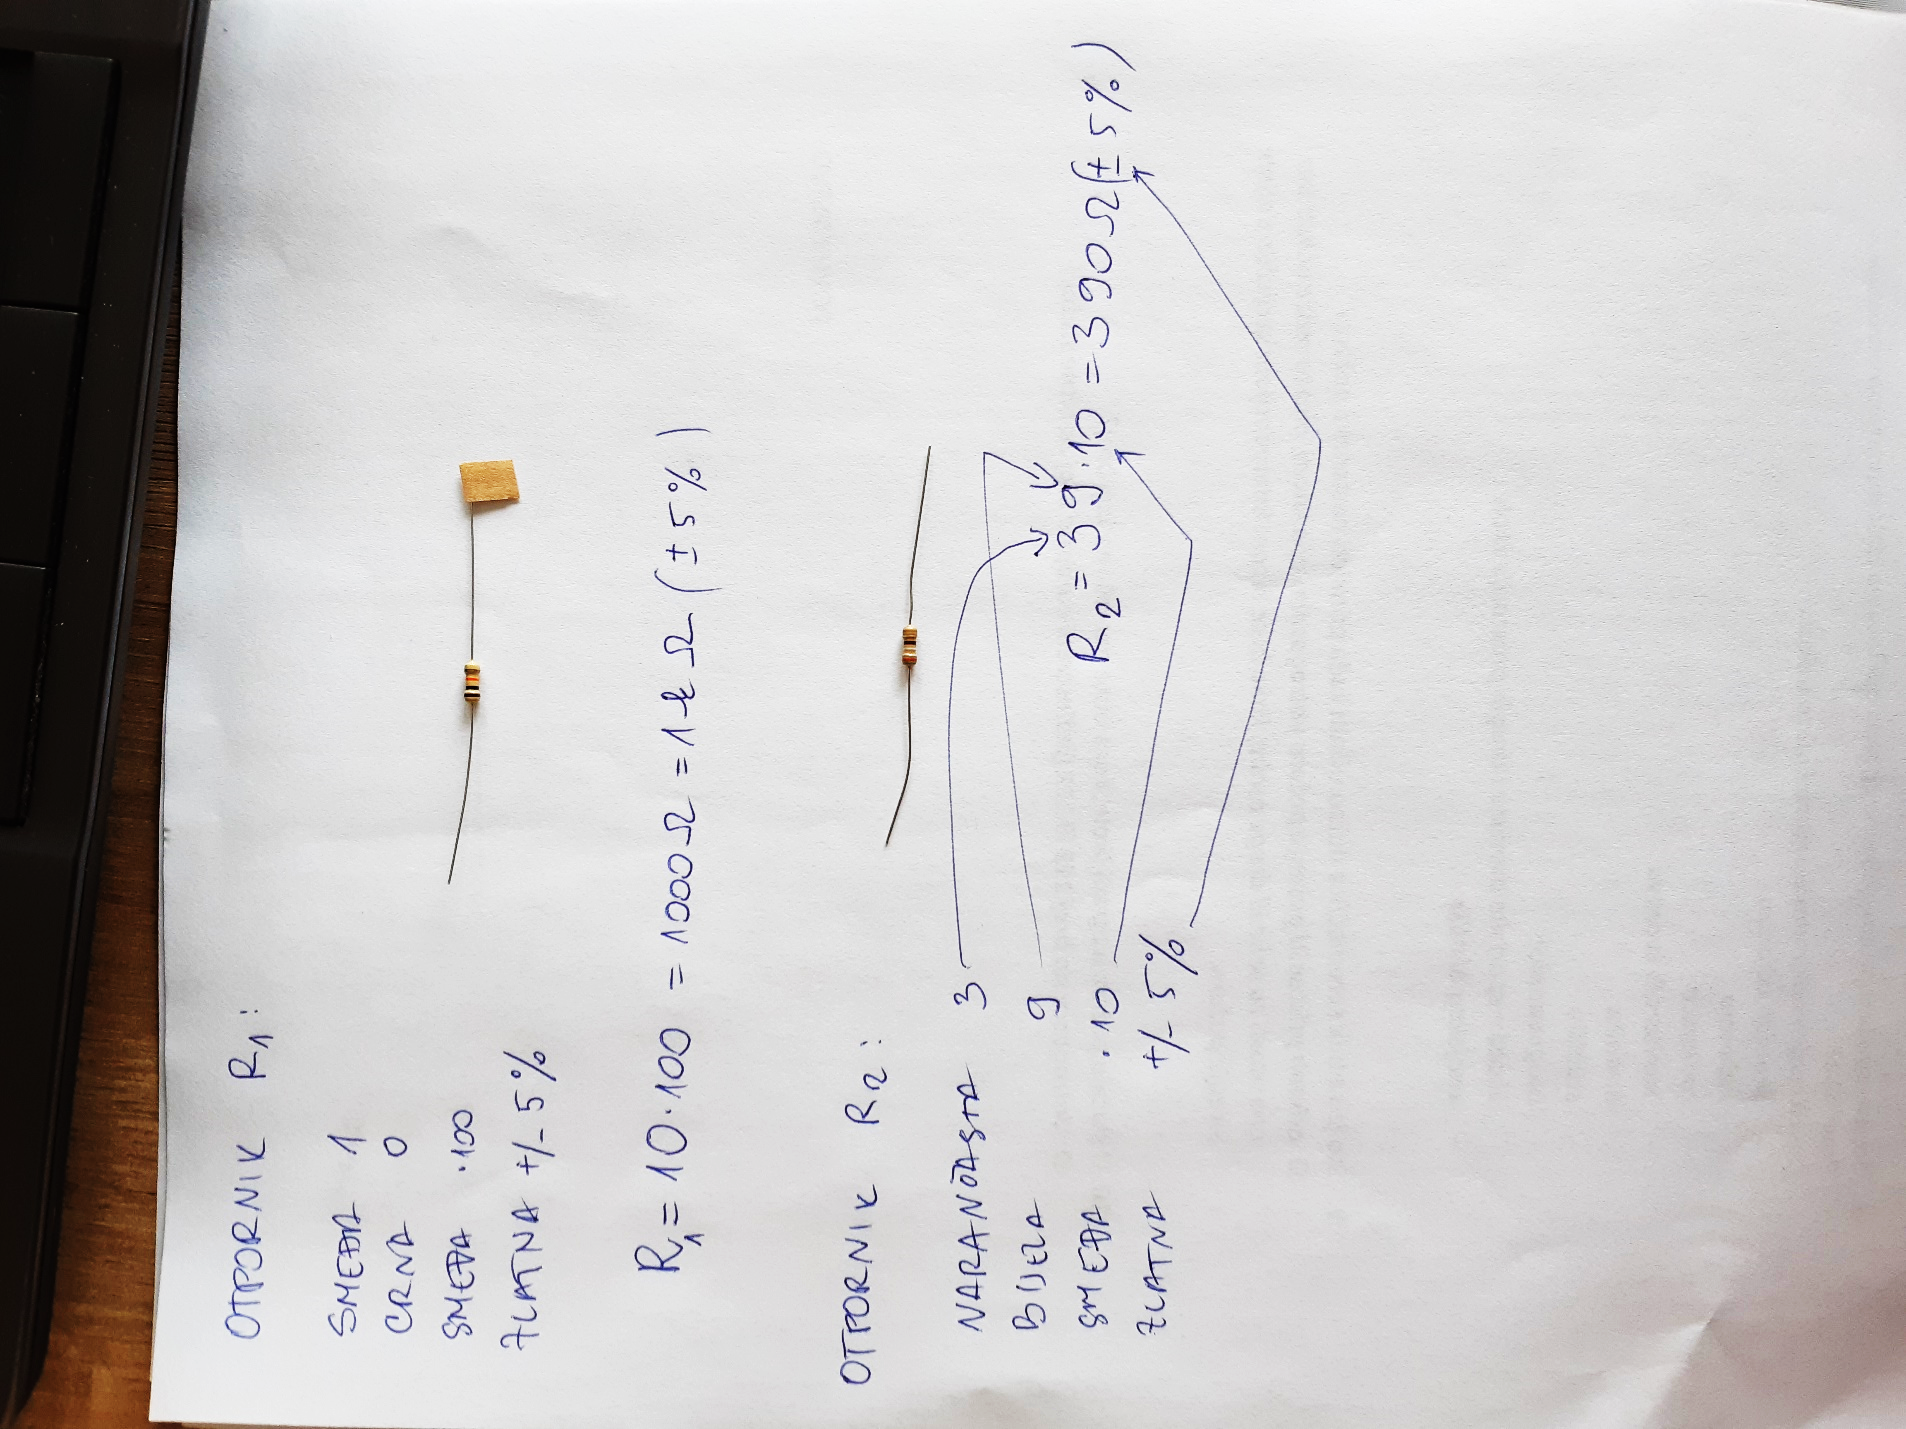 OTPORNIK R1:
SMEĐA 1
CRNA 0
SMEĐA ·100
ZLATNA +/- 5%
R1 = 10·100 = 1000Ω = 1kΩ (± 5%)
OTPORNIK R2:
NARANČASTA 3
BIJELA 9
SMEĐA ·10
ZLATNA +/- 5%
R2 = 39·10 = 390Ω (± 5%)